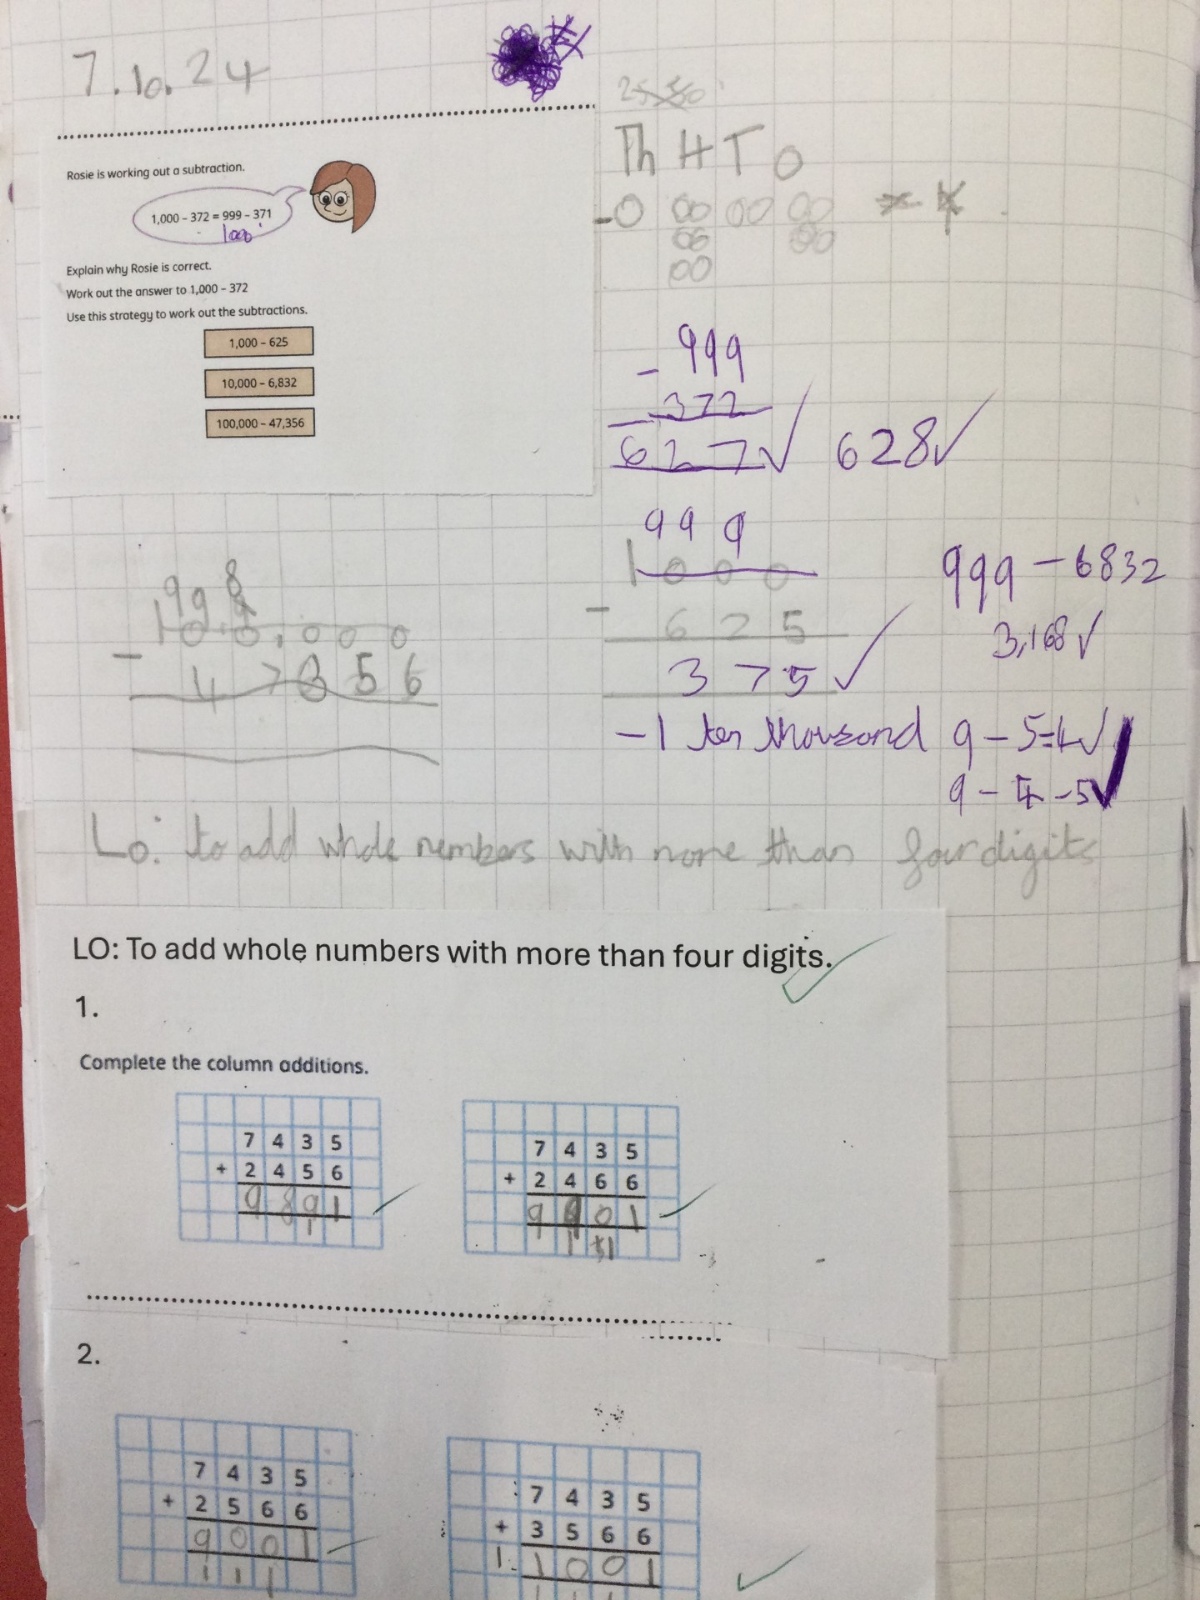 7.10.24
Rosie is working out a subtraction.
1,000 – 372 = 999 – 371
1000
Explain why Rosie is correct.
Work out the answer to 1,000 – 372
Use this strategy to work out the subtractions.
1,000 – 625
10,000 – 6,832
100,000 – 47,356
Th H T O
- 999
372
627 ✓ 628 ✓
999
1000
- 625
375 ✓
999 - 6832
3,168 ✓
99 8
100,000
- 47356
-1 ten thousand 9 - 5=4 ✓
9 - 4 - 5 ✓
Lo: to add whole nembers with none than four digits
LO: To add whole numbers with more than four digits.
1.
Complete the column additions.
7 4 3 5
+ 2 4 5 6
9 8 9 1
1
7 4 3 5
+ 2 4 6 6
9 9 0 1
1 1
2.
7 4 3 5
+ 2 5 6 6
9 0 0 1
1 1 1
7 4 3 5
+ 3 5 6 6
1 1 0 0 1
1 1 1